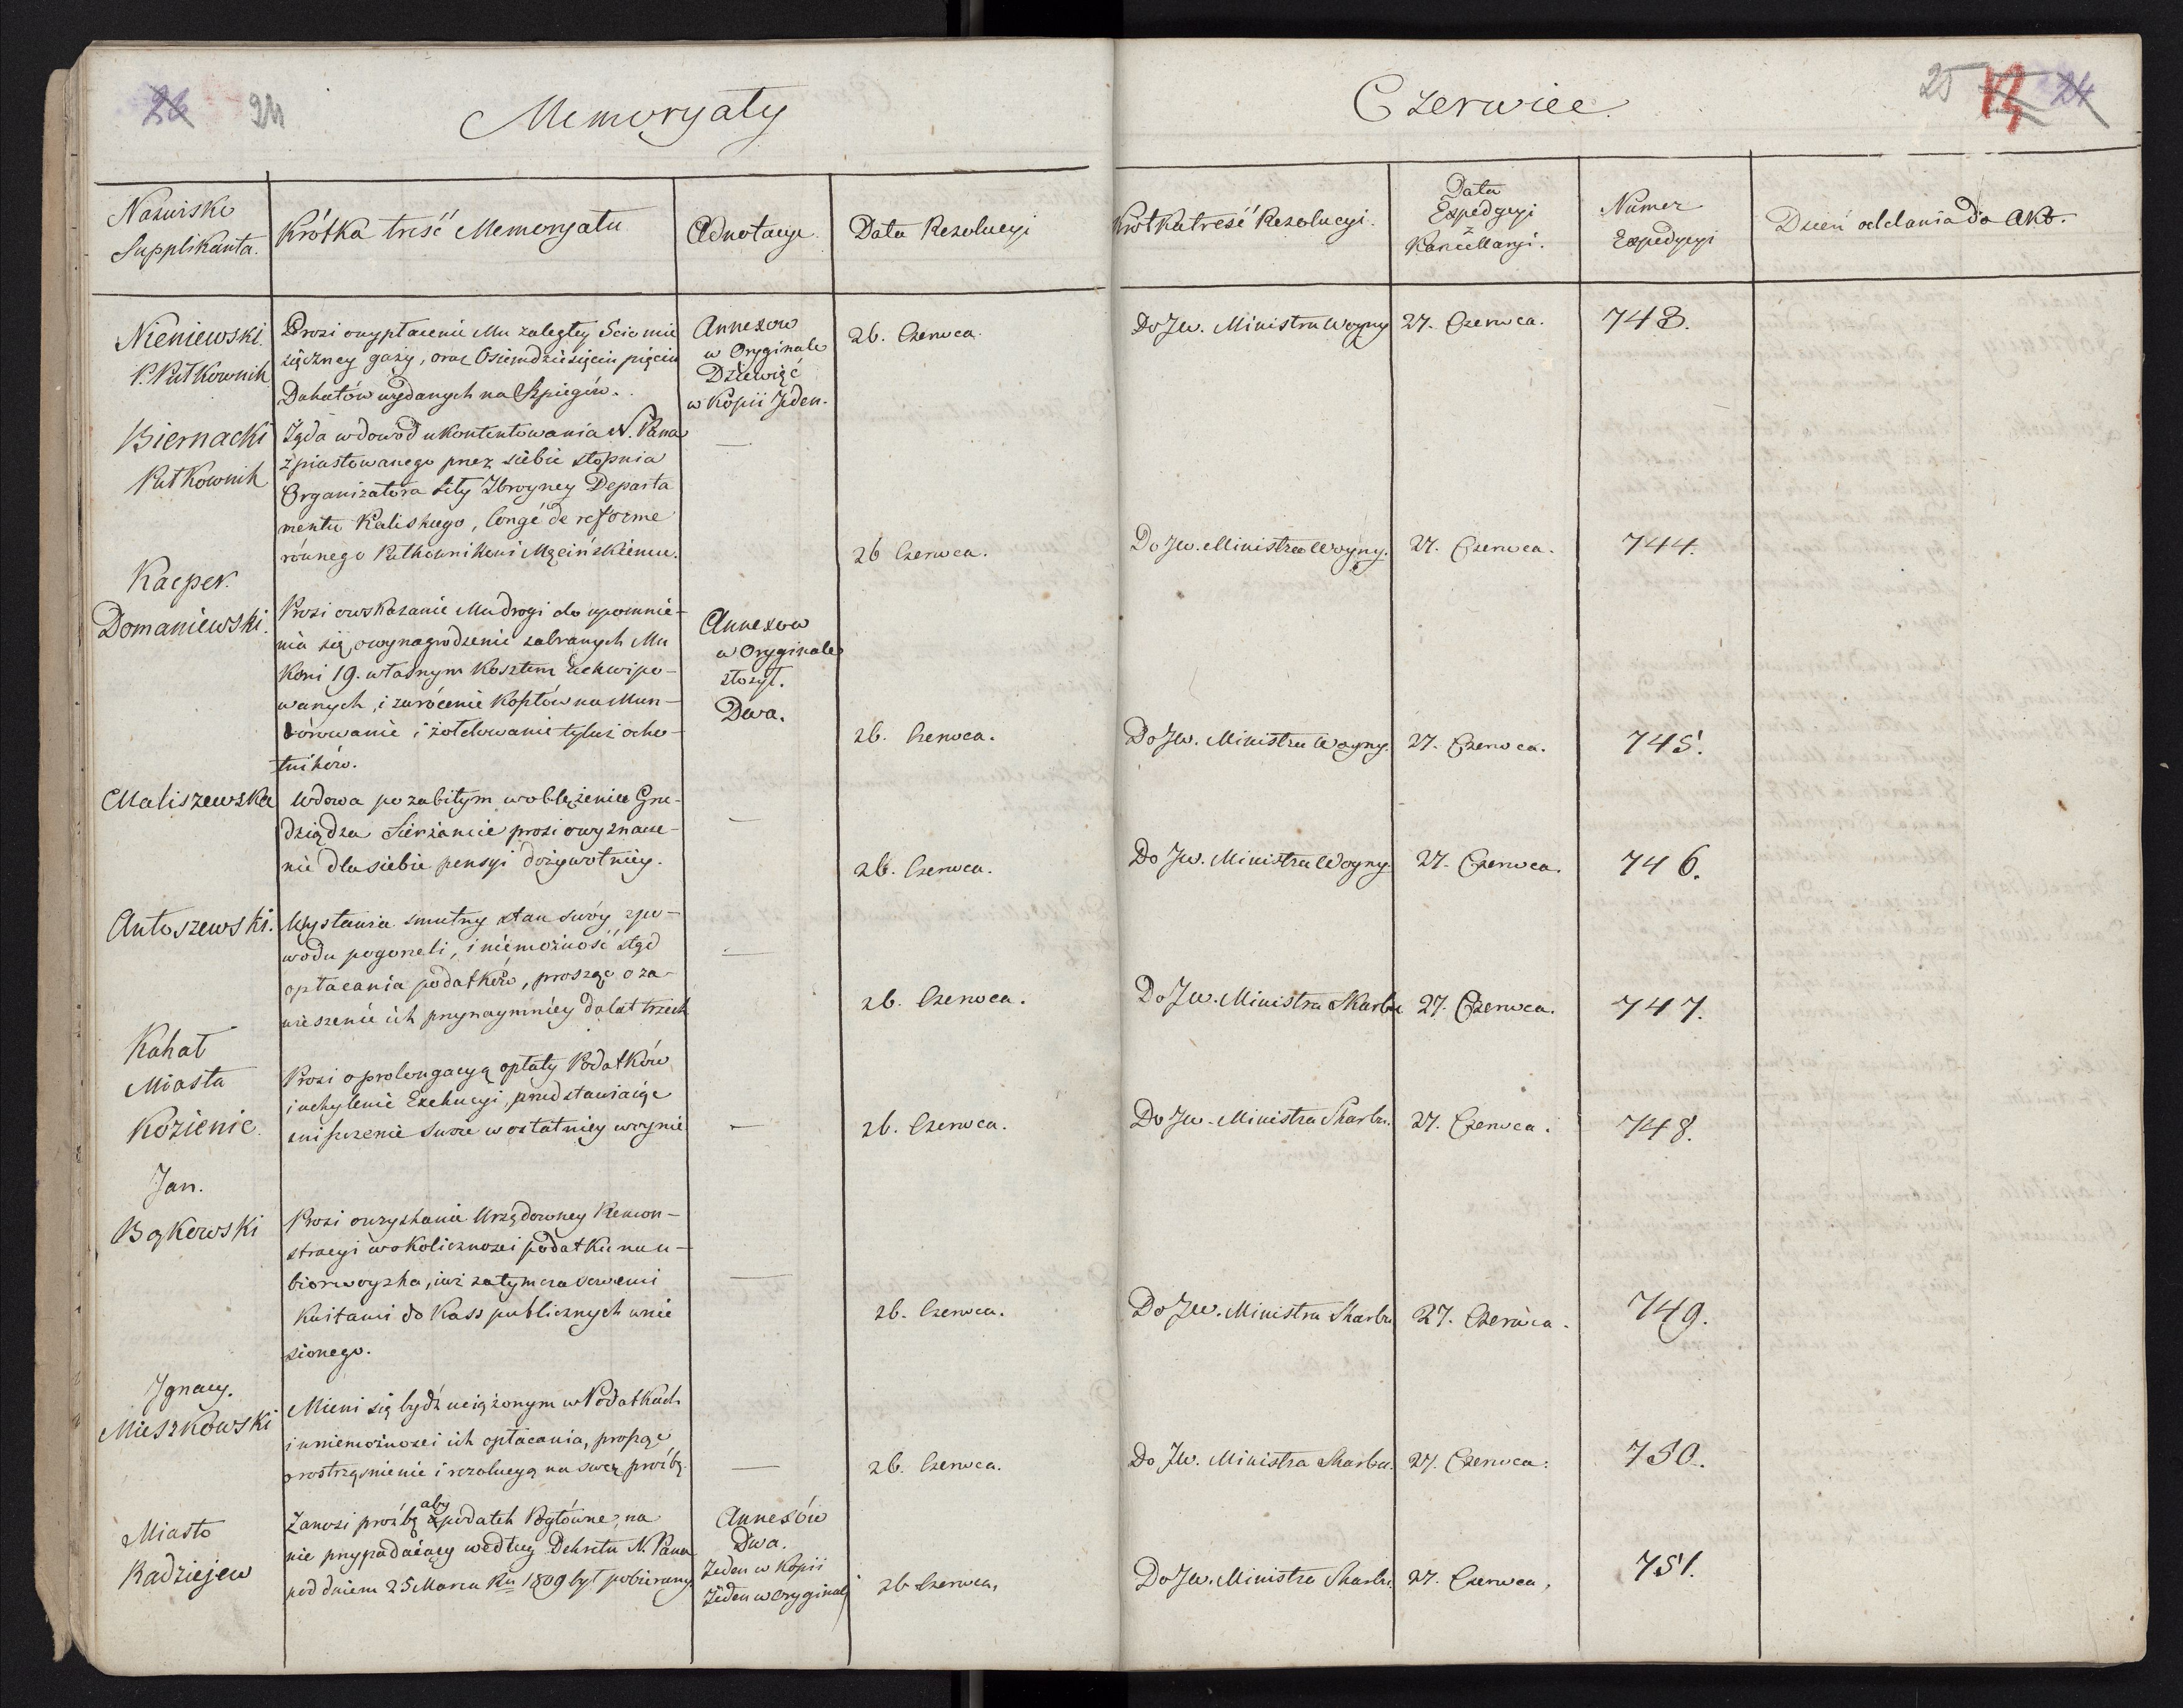 26 24
Memoryały
Czerwiec.
25 13 24
Nazwisko
Supplikanta.
Krótka treść Memoryału
Adnotacye
Data Rezolucyi
Krótka treść Rezolucyi.
Data
Expedycyi
z
Kancellaryi.
Numer
Expedycyi
Dzień oddania do Akt.
Nieniewski.
P. Pułkownik
Prosi o wypłacenie Mu zaległey 5cio mie
sięczney gaży, oraz Osiemdziesięciu pięciu
Dukatów wydanych na Szpiegów.
Annexow
w Oryginale
Dziewięć
w Kopii Jeden.
26. Czerwca.
Do Jw. Ministra Woyny
27. Czerwca.
743.
Biernacki
Pułkownik
Żąda w dowód ukontentowania N. Pana
z piastowanego przez siebie stopnia
Organizatora siły Zbroyney Departa
mentu Kaliskiego, Congé de reforme
równego Pułkownikowi Męcińskiemu.
—
26 Czerwca.
Do Jw. Ministra Woyny.
27. Czerwca.
744.
Kacper
Domaniewski.
Prosi o wskazanie Mu drogi do upomnie-
nia się o wynagrodzenie zabranych Mu
Koni 19. własnym Kosztem zekwipo-
wanych, i zwrócenie Kosztów na Mun-
dórowanie i żołdowanie tyluż ocho-
tników.
Annexow
w Oryginale
złożył.
Dwa.
26. Czerwca.
Do Jw. Ministra Woyny.
27. Czerwca.
745.
Maliszewska
Wdowa po zabitym w oblężeniu Gru-
dziądza Sierżancie prosi o wyznacze-
nie dla siebie pensyi dożywotniey.
—
26. Czerwca.
Do Jw. Ministra Woyny.
27. Czerwca.
746.
Antoszewski.
Wystawia smutny stan swóy z po-
wodu pogorzeli, i niemożność stąd
opłacania podatków, prosząc o za-
wieszenie ich przynaymniey do lat trzech
—
26. Czerwca.
Do Jw. Ministra Skarbu
27. Czerwca.
747.
Kahał
Miasta
Kozienic.
Prosi o prolongacyą opłaty Podatków
i uchylenie Exekucyi, przedstawiaiąc
zniszczenie swoie w ostatniey woynie
—
26. Czerwca.
Do Jw. Ministra Skarbu.
27. Czerwca.
748.
Jan.
Bąkowski
Prosi o uzyskanie Urzędowney Remon-
stracyi w okoliczności podatku na u-
biór woyska, iuż za tymczasowemi
Kwitami do Kass publicznych wnie
sionego.
—
26. Czerwca.
Do Jw. Ministra Skarbu
27. Czerwca.
749.
Ignacy.
Mieszkowski
Mieni się bydź uciążonym w Podatkach
i w niemożności ich opłacania, prosząc
o rostrząśnienie i rezolucyą na swą prośbę.
—
26. Czerwca.
Do Jw. Ministra Skarbu.
27. Czerwca.
750.
Miasto
Radziejew
Zanosi prośbę aby podatek na
nie przypadaiący według Dekretu N. Pana
pod dniem 25 Marca Rku 1809 był pobierany
Annexów
Dwa.
Jeden w Kopii
Jeden w oryginale
26 Czerwca.
Do Jw. Ministra Skarbu.
27. Czerwca.
751.